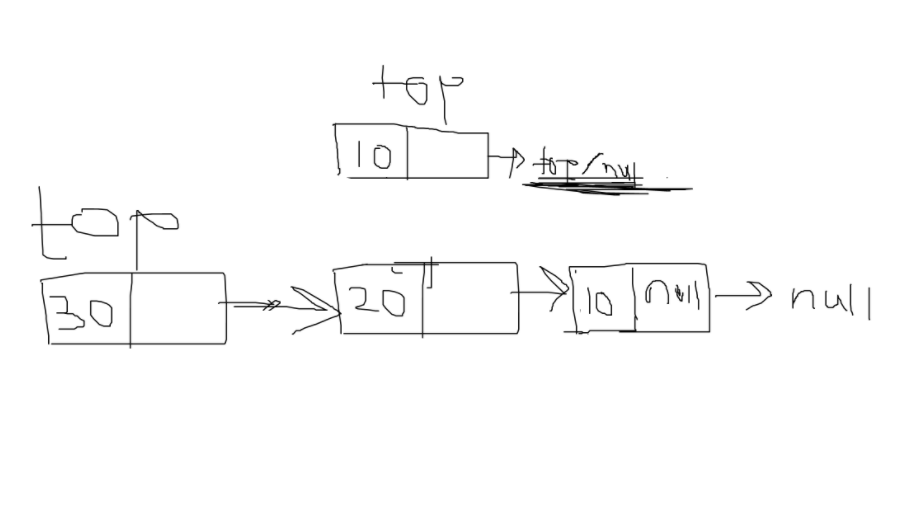 top
10 top/null
top
30 20 10 null null